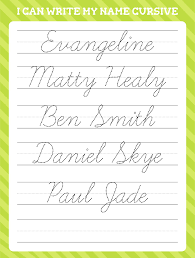 I CAN WRITE MY NAME CURSIVE
Evangeline
Matty Healy
Ben Smith
Daniel Skye
Paul Jade